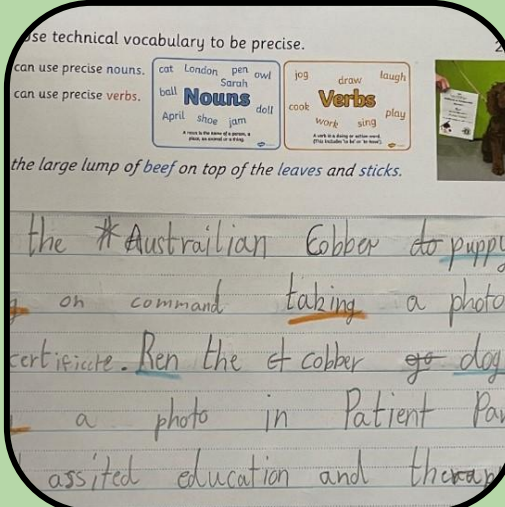 use technical vocabulary to be precise.
can use precise nouns.
can use precise verbs.
cat London pen owl
Sarah
ball Nouns doll
April shoe jam
A noun is the name of a person, a
place, an animal or a thing.
jog draw laugh
cook Verbs play
work sing
A verb is a doing or action word.
(This includes 'to be' or 'to have').
the large lump of beef on top of the leaves and sticks.
the Austrailian Cobber do puppy
on command taking a photo
certificate. Ren the cobber go dog
a photo in Patient Paw
assited education and therap